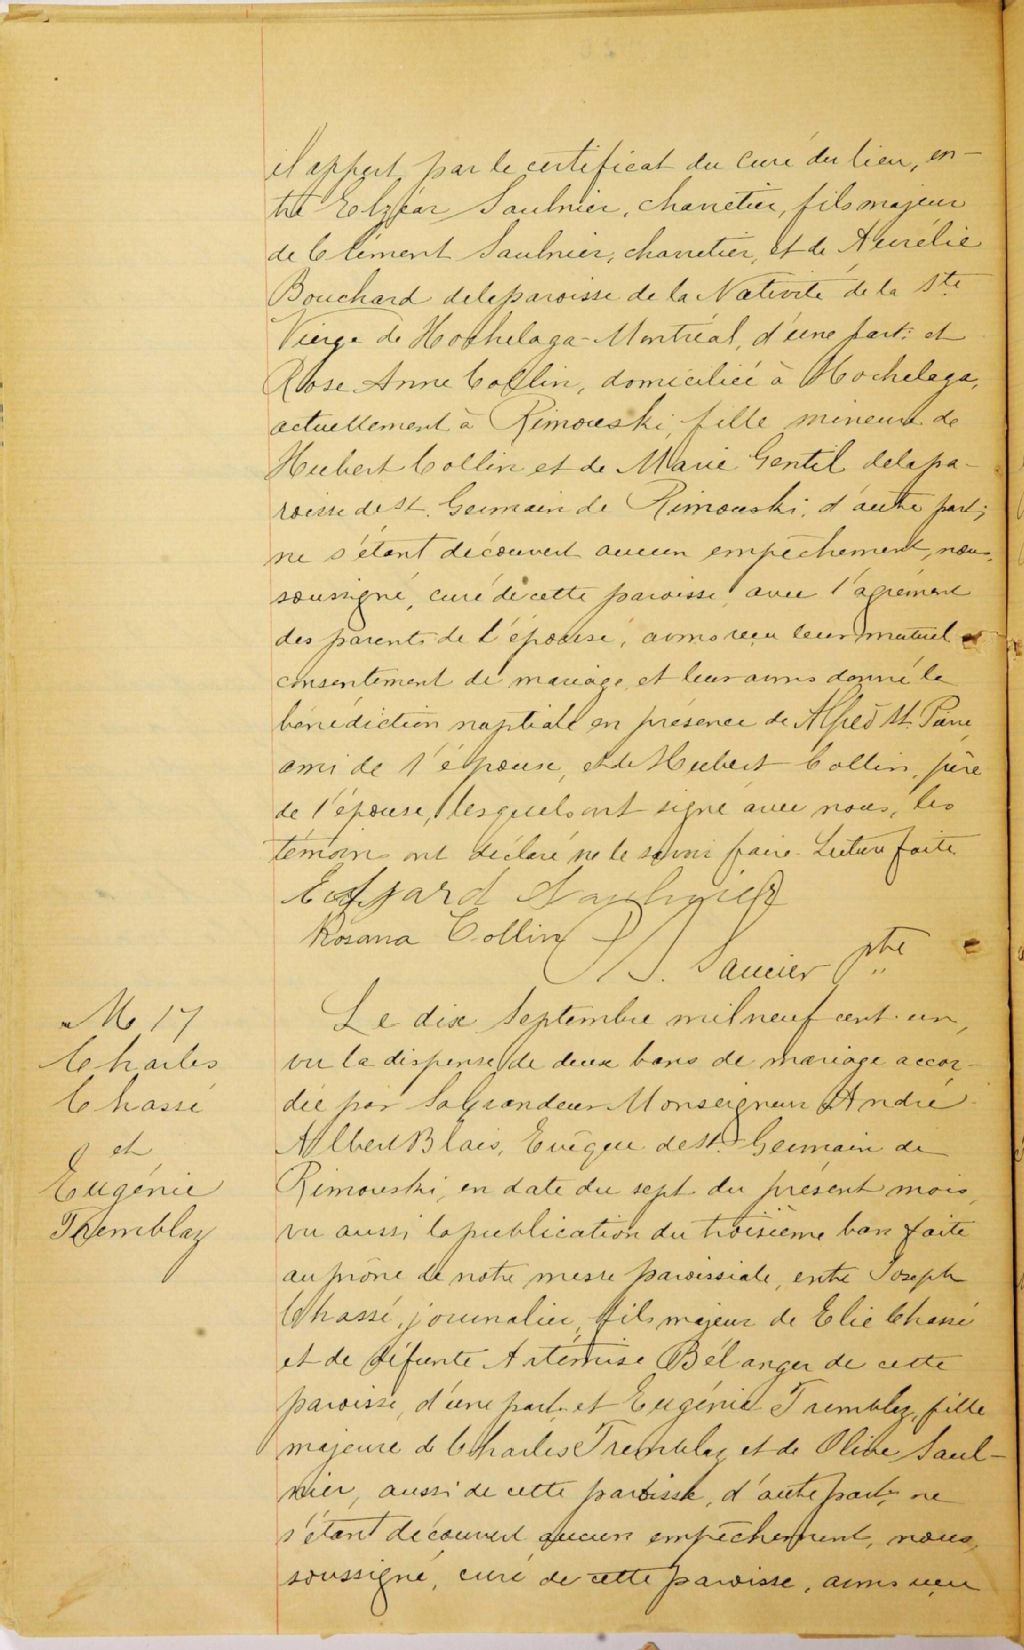 il appert par le certificat du curé du lieu, en-
tre Elzéar Saulnier, charretier, fils majeur
de Clément Saulnier, charretier, et de Aurélie
Bouchard de la paroisse de la Nativité de la Ste
Vierge de Hochelaga-Montréal, d'une part; et
Rose Anne Collin, domiciliée à Hochelaga,
actuellement à Rimouski, fille mineure de
Hubert Collin et de Marie Gentil de la pa-
roisse de St. Germain de Rimouski, d'autre part;
ne s'étant découvert aucun empêchement, nous,
soussigné, curé de cette paroisse, avec l'agrément
des parents de l'épouse, avons reçu leur mutuel
consentement de mariage et leur avons donné la
bénédiction nuptiale en présence de Alfred St. Pierre
ami de l'épouse, et de Hubert Collin, père
de l'épouse, lesquels ont signé avec nous, les
témoins ont déclaré ne le savoir faire. Lecture faite
Edgard Saulnier
Rosana Collin
Saucier Ptre
M 17
Charles
Chassé
et
Eugénie
Tremblay
Le dix Septembre mil neuf cent un,
vu la dispense de deux bans de mariage accor-
dée par Sa Grandeur Monseigneur André
Albert Blais, Evêque de St. Germain de
Rimouski, en date du sept du présent mois,
vu aussi la publication du troisième ban faite
au prône de notre messe paroissiale, entre Joseph
Chassé, journalier, fils majeur de Elie Chassé
et de défunte Artémise Bélanger de cette
paroisse, d'une part; et Eugénie Tremblay, fille
majeure de Charles Tremblay et de Olive Saul-
nier, aussi de cette paroisse, d'autre part; ne
s'étant découvert aucun empêchement, nous,
soussigné, curé de cette paroisse, avons reçu